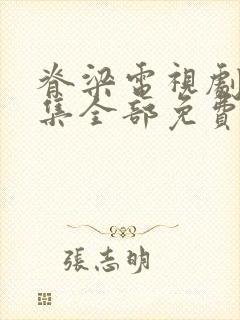 脊梁電視劇
集全部免費
張志明